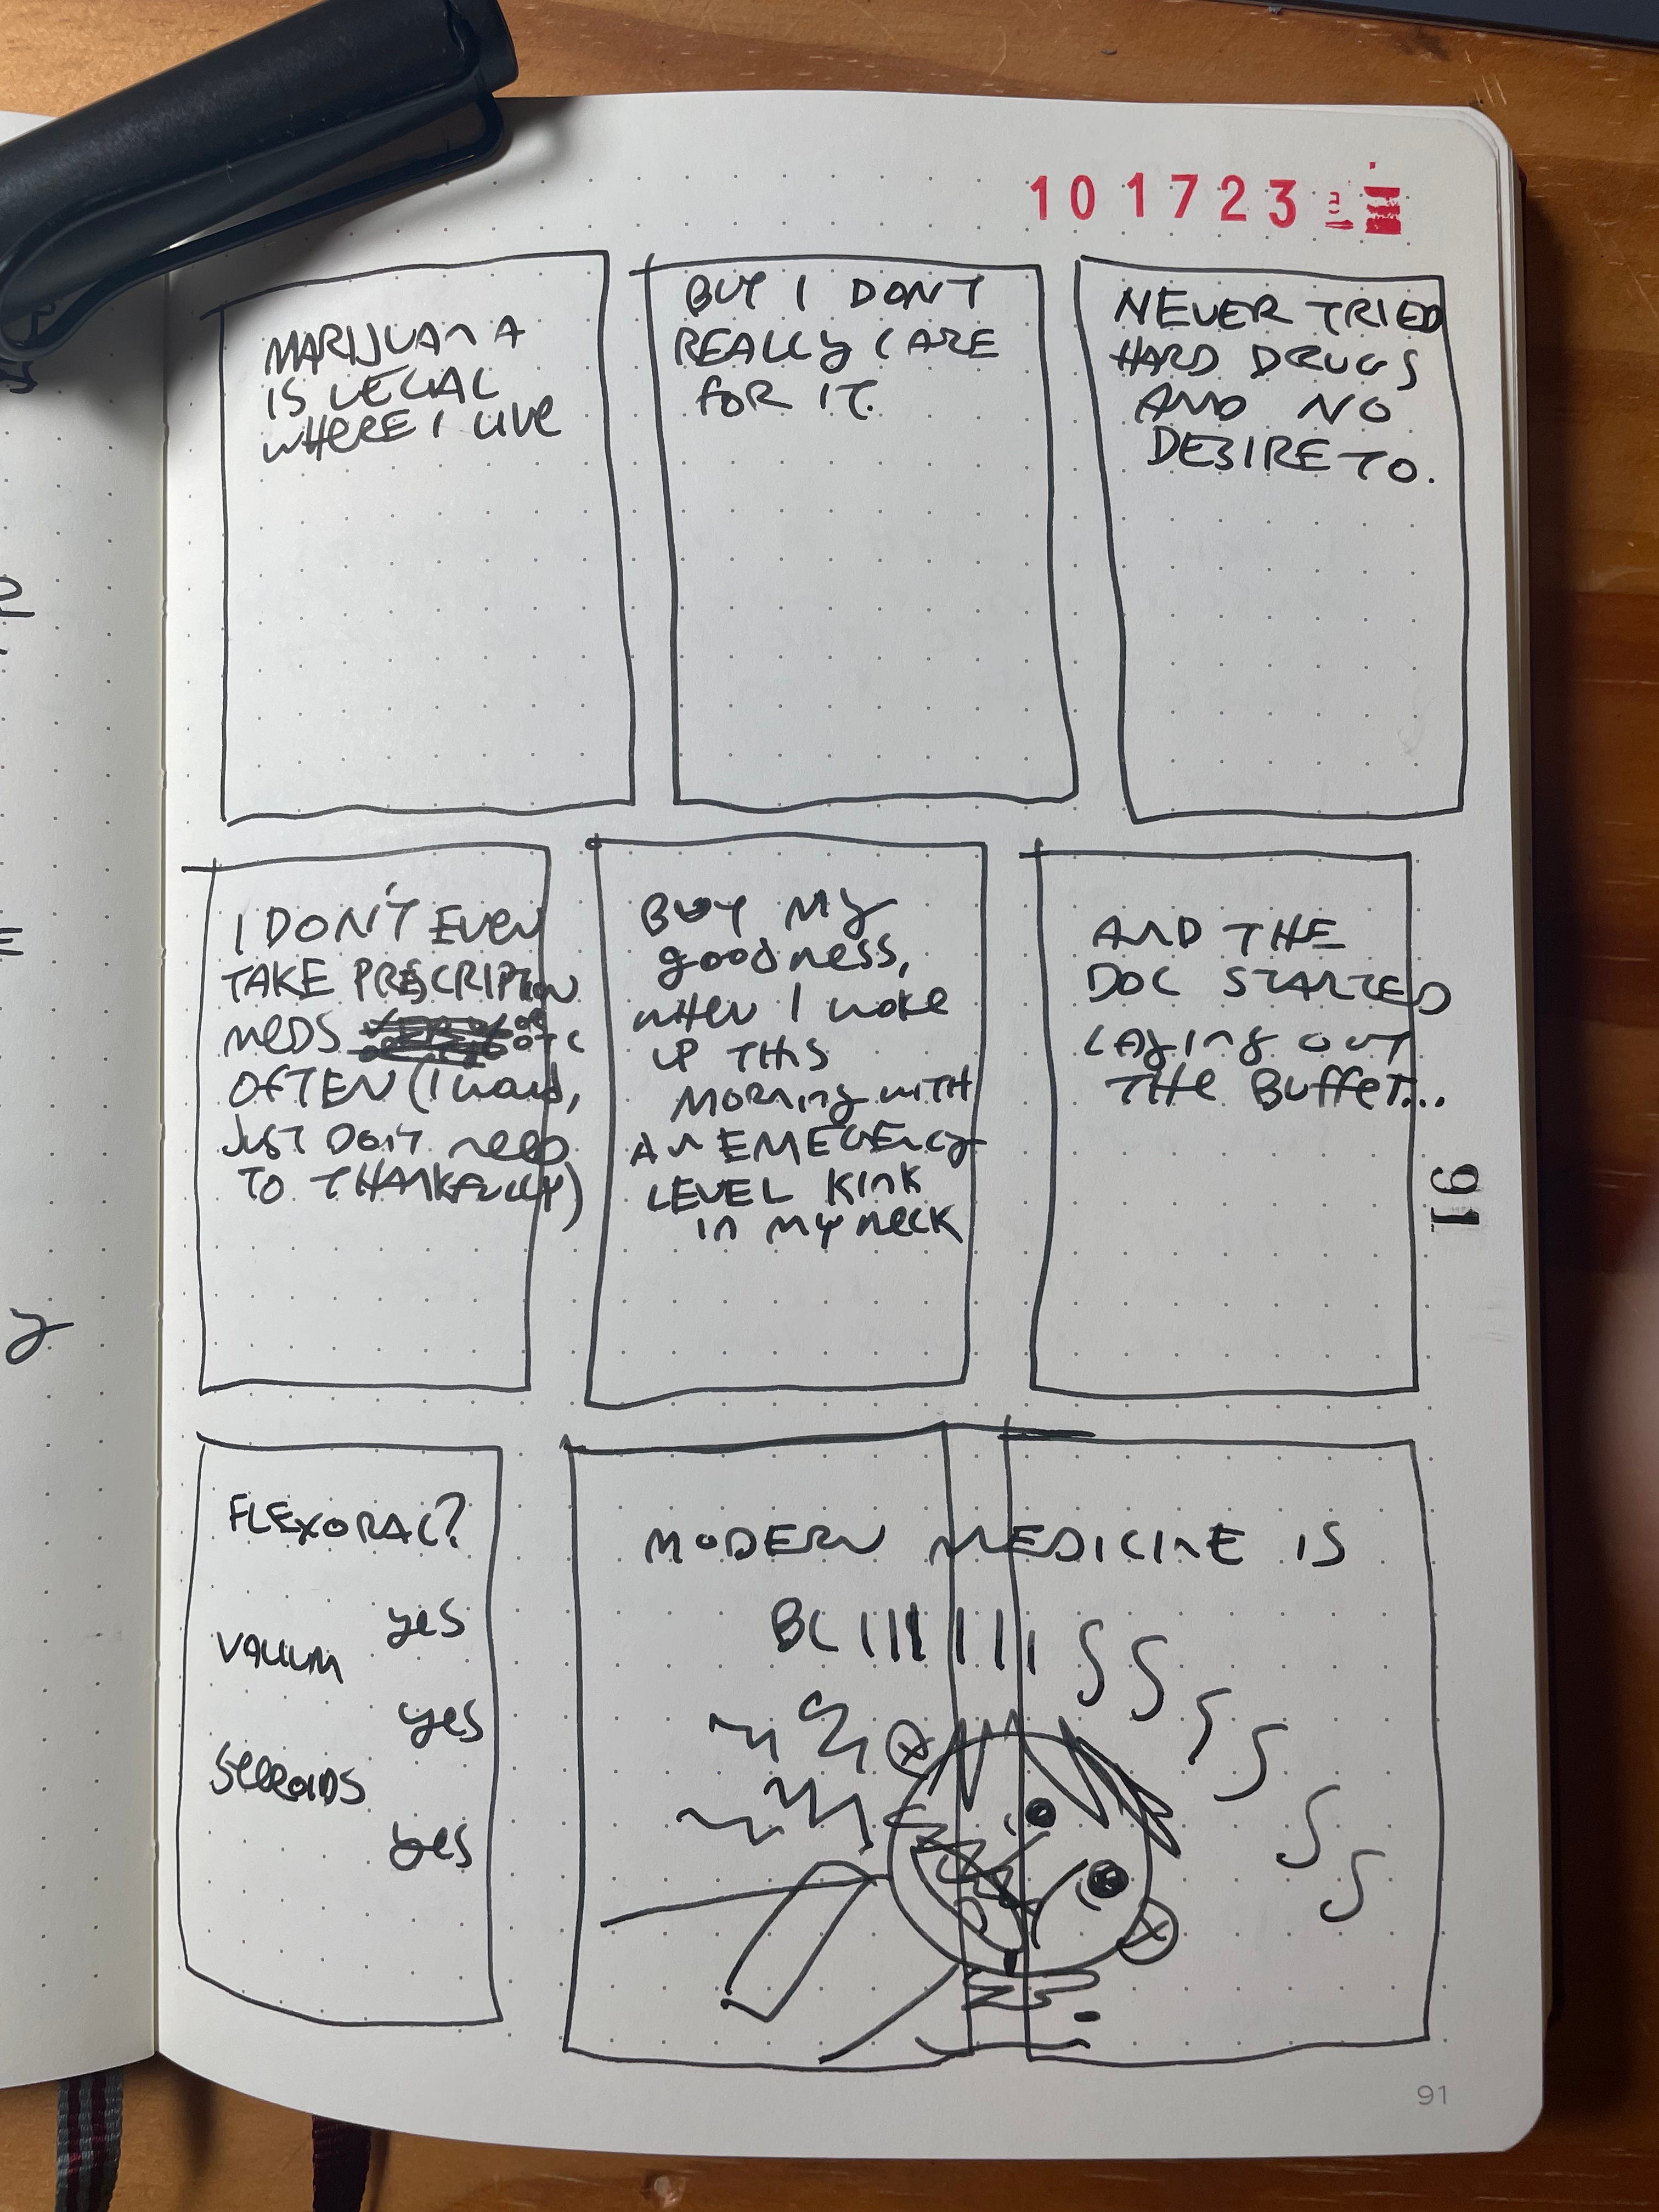 101723
MARIJUANA
IS LEGAL
WHERE I LIVE
BUT I DON'T
REALLY CARE
FOR IT.
NEVER TRIED
HARD DRUGS
AND NO
DESIRE TO.
I DON'T EVEN
TAKE PRESCRIPTION
MEDS OR OTC
OFTEN (I would,
JUST DON'T NEED
TO THANKFULLY)
BUT MY
goodness,
when I woke
UP THIS
MORNING WITH
AN EMEGENCY
LEVEL KINK
IN MY NECK
AND THE
DOC STARTED
LAYING OUT
THE BUFFET...
91
FLEXORAL?
yes
VALIUM
yes
STEROIDS
yes
MODERN MEDICINE IS
BLIIIIIISSSSSS
91